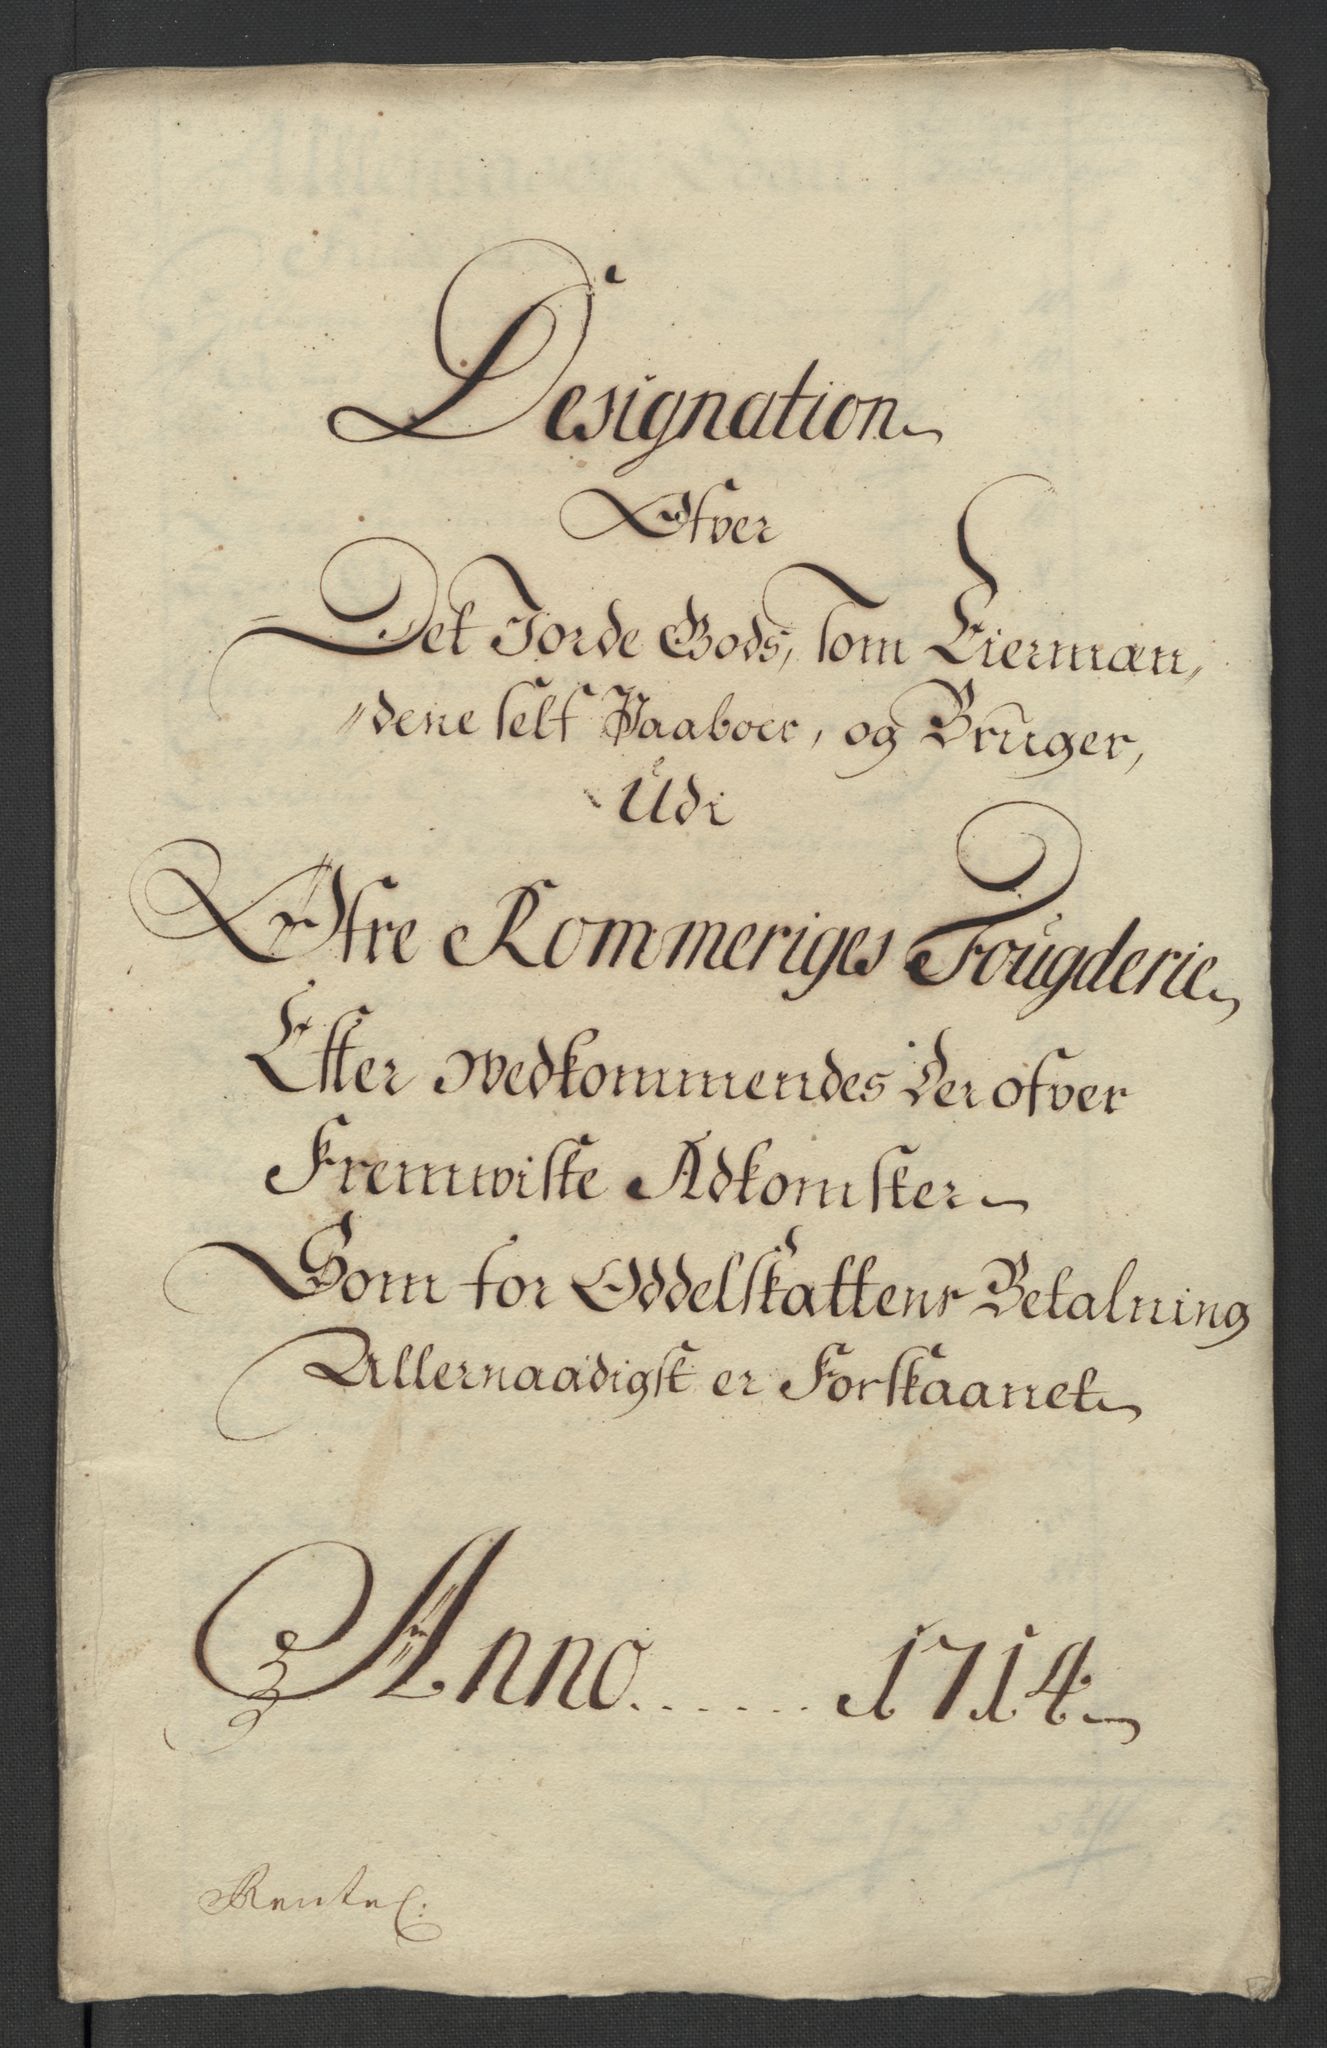 Designation
Ofver
Det Jorde Gods, som Eiermæn,,
,,dene self Paaboer, og Bruger,
Udi
Øfre Rommeriges Fougderie
Efter wedkommendes der ofver
Fremwiste Adkomster
Som for Oddelskattens Betalning
Allernaadigst er Forskaanet
Anno ...... 1714
Rentel: